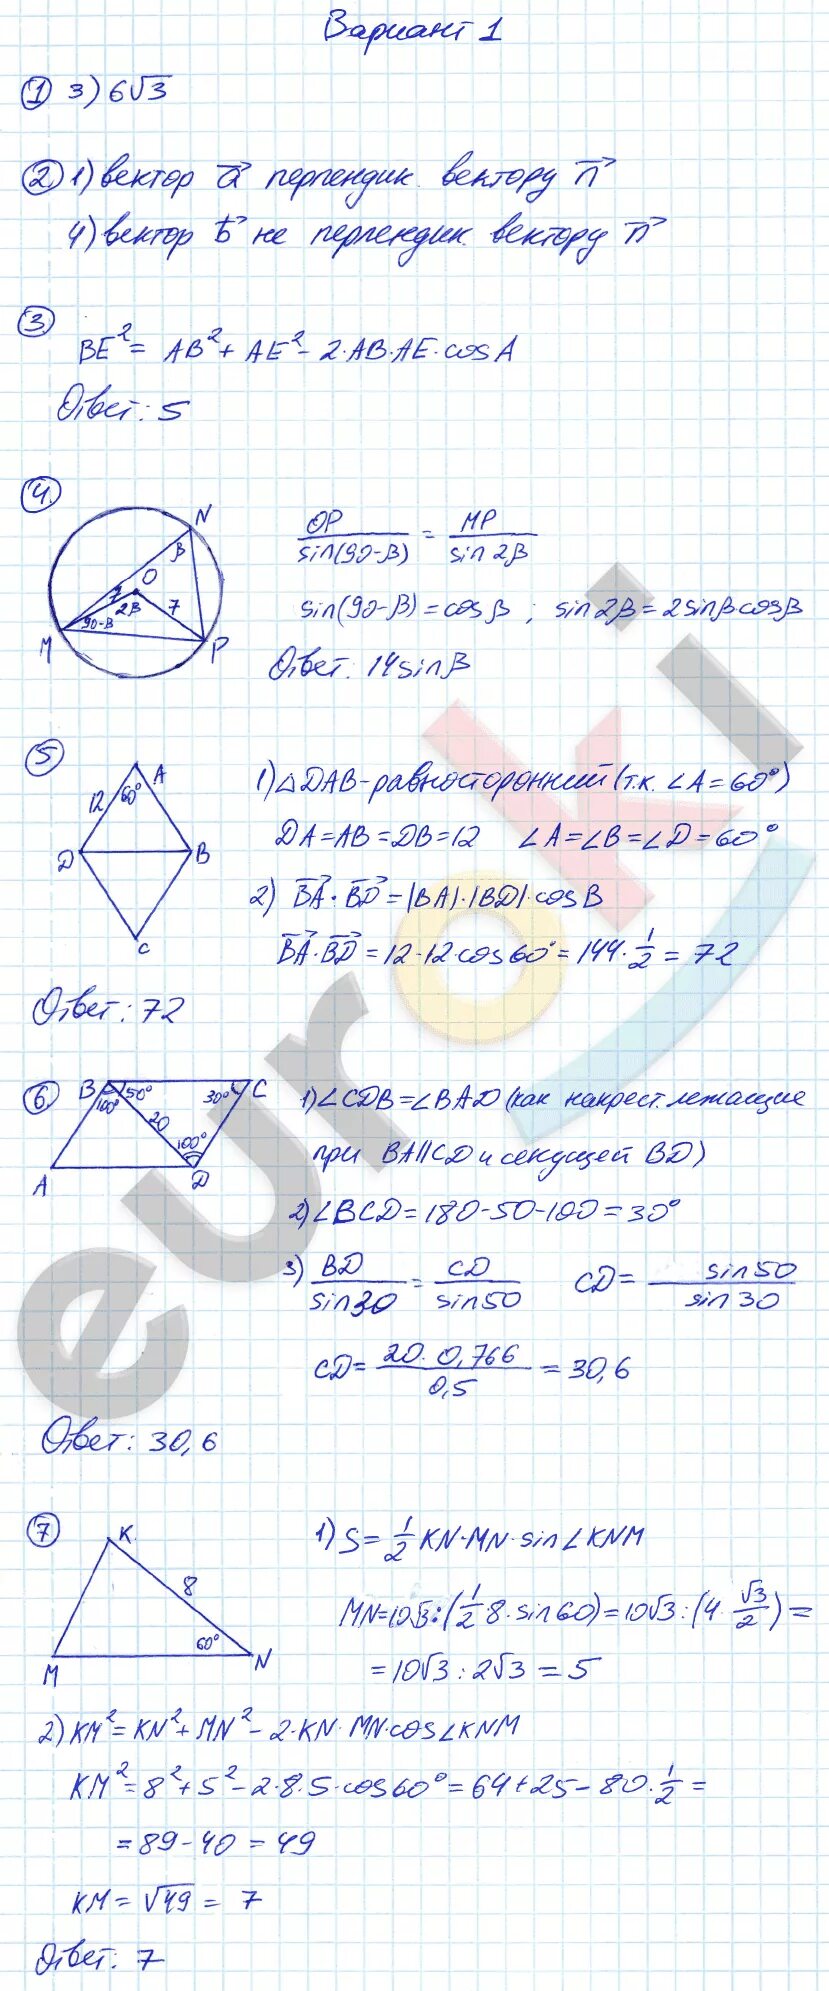 Вариант 1
① 3) 6√3
② 1) вектор a⃗ перпендик. вектору n⃗
4) вектор b⃗ не перпендик. вектору n⃗
③
BE² = AB² + AE² - 2·AB·AE·cosA
Ответ: 5
④
N
β
O
7
2β
7
90-β
M
P
OP/sin(90-β) = MP/sin2β
sin(90-β) = cosβ ; sin2β = 2sinβcosβ
Ответ: 14sinβ
⑤
A
12
60°
D
B
C
1) △DAB-равносторонний (т.к. ∠A = 60°)
DA = AB = DB = 12 ∠A = ∠B = ∠D = 60°
2) BA⃗ · BD⃗ = |BA|·|BD|·cosB
BA⃗·BD⃗ = 12·12·cos60° = 144·1/2 = 72
Ответ: 72
⑥
B
50°
30°
C
100°
20
100°
A
D
1) ∠CDB = ∠BAD (как накрест. лежащие
при BA||CD и секущей BD)
2) ∠BCD = 180-50-100 = 30°
3) BD/sin30 = CD/sin50 CD = sin50/sin30
CD = 20·0,766/0,5 = 30,6
Ответ: 30,6
⑦
K
8
60°
M
N
1) S = 1/2 KN·MN·sin∠KNM
MN = 10√3:(1/2 8·sin60) = 10√3:(4·√3/2) =
= 10√3 : 2√3 = 5
2) KM² = KN² + MN² - 2·KN·MN·cos∠KNM
KM² = 8² + 5² - 2·8·5·cos60° = 64 + 25 - 80·1/2 =
= 89 - 40 = 49
KM = √49 = 7
Ответ: 7
euroki